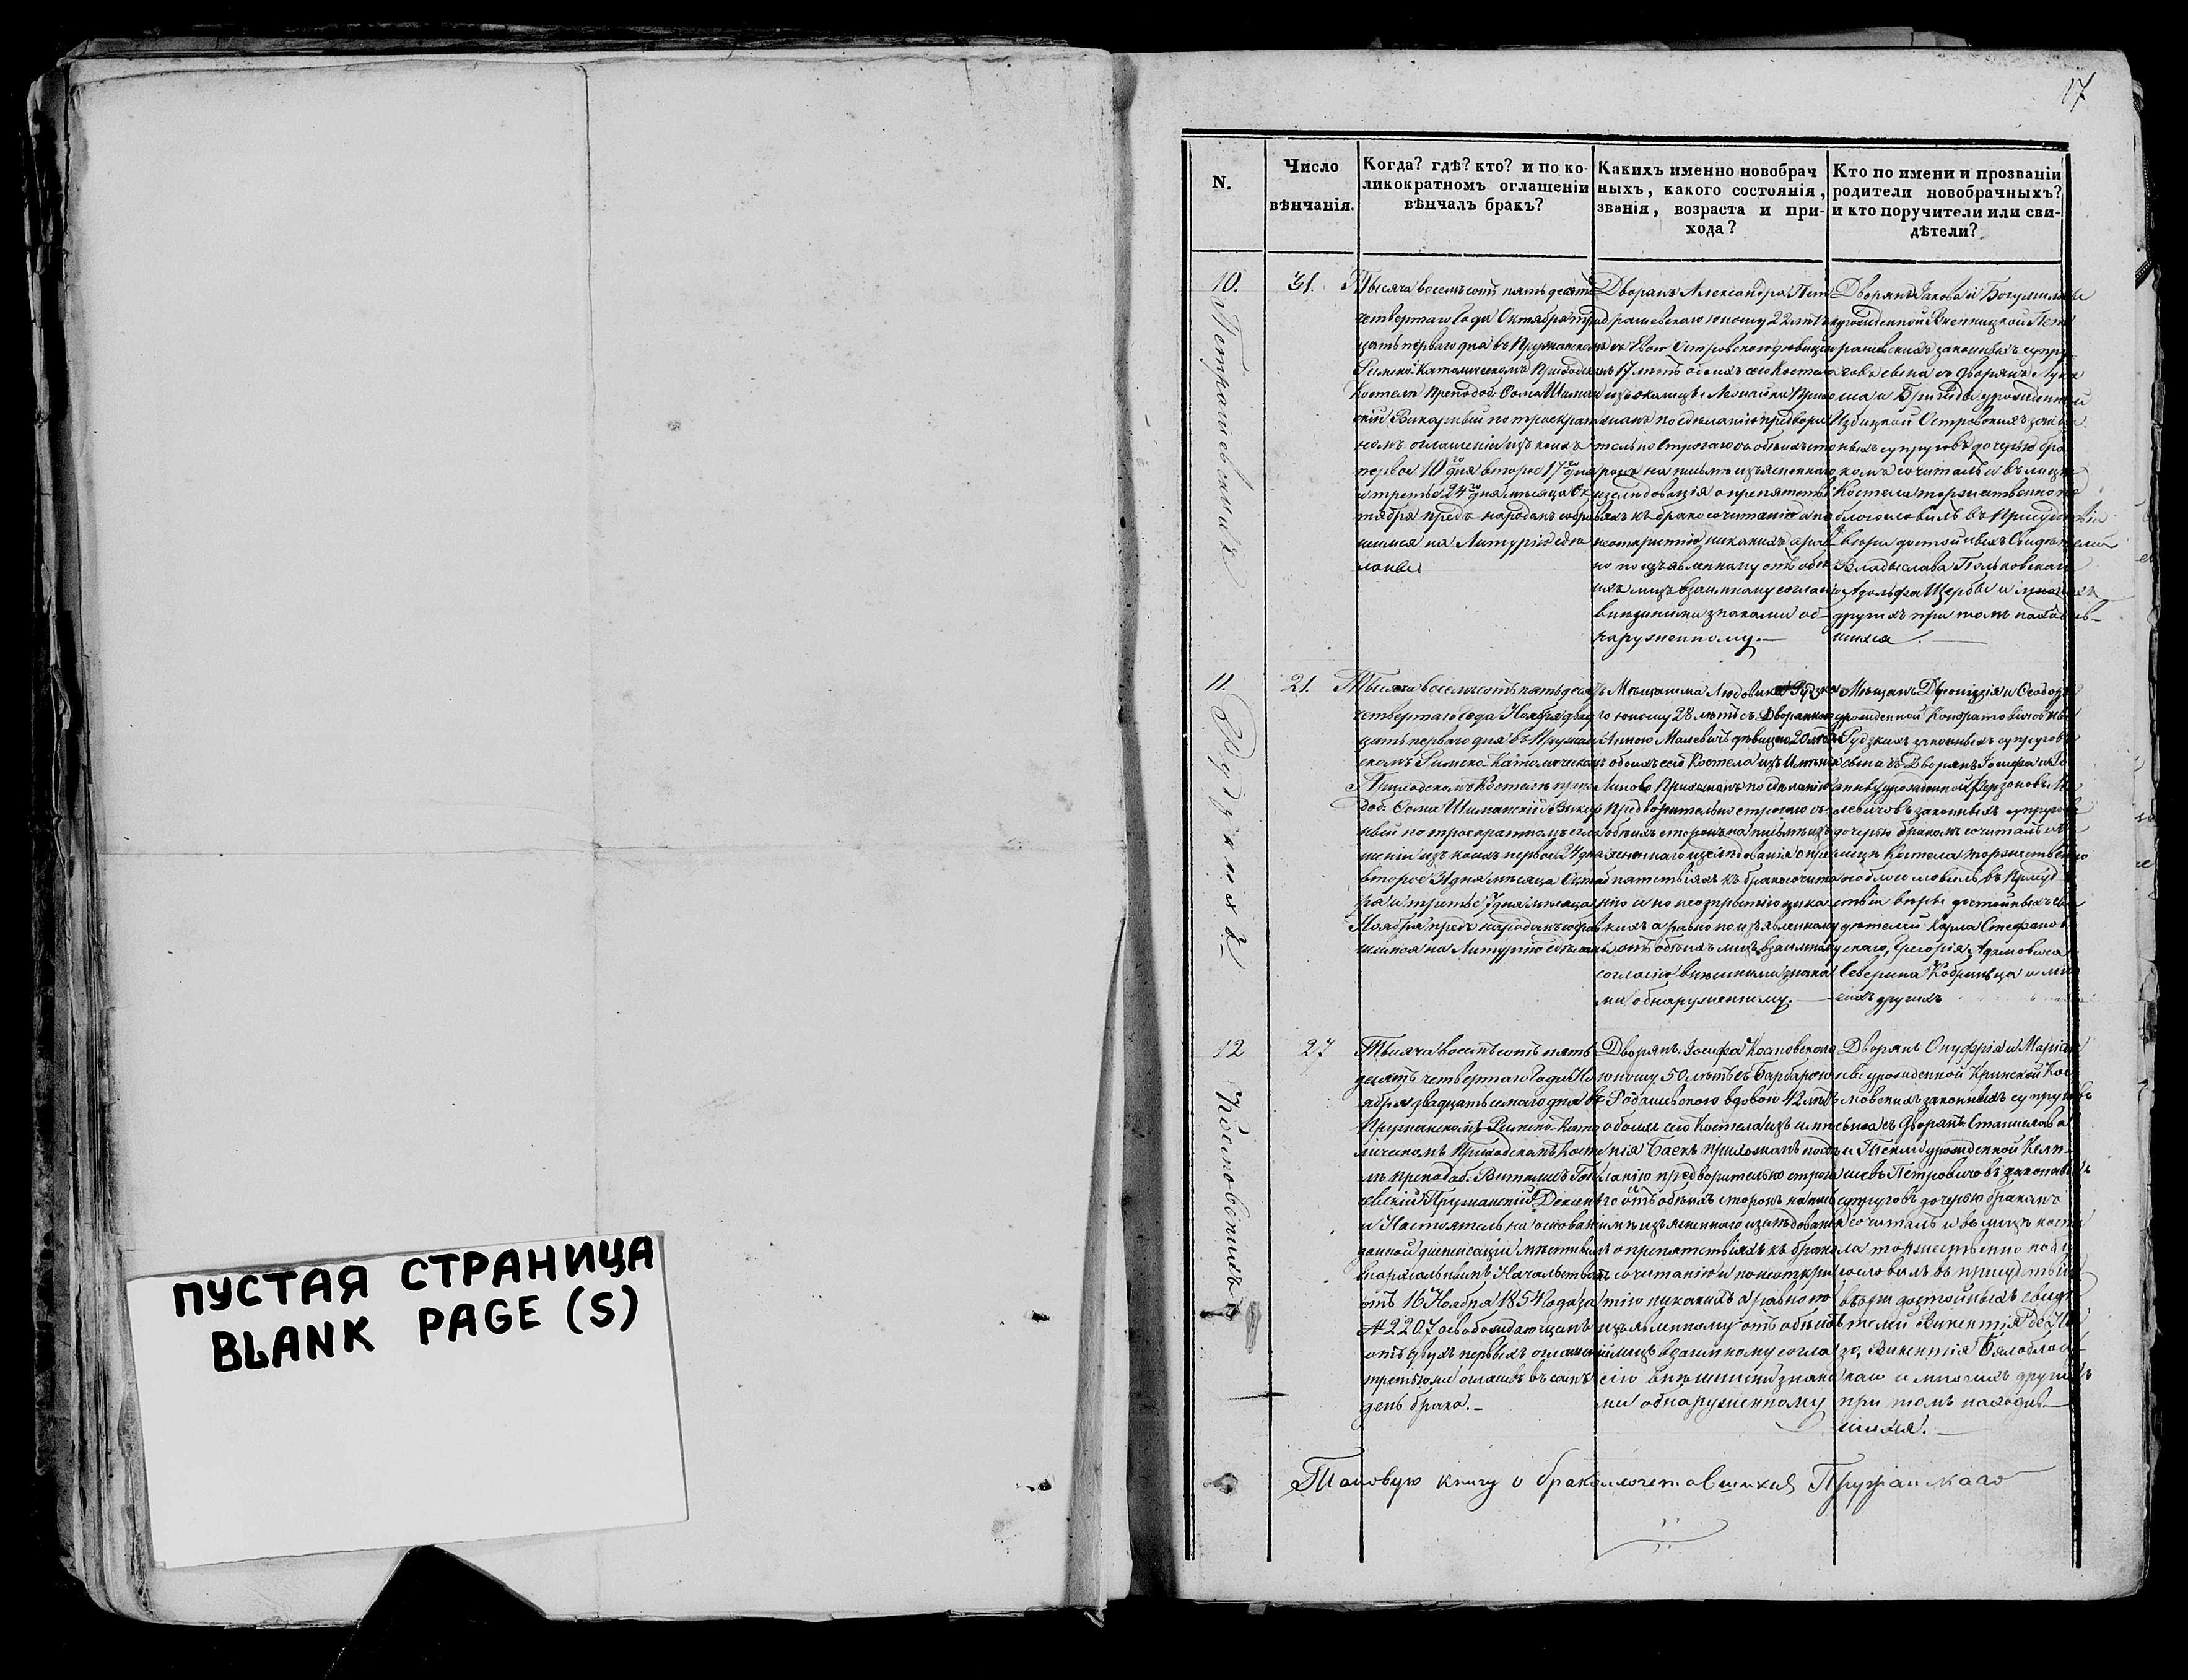 ПУСТАЯ СТРАНИЦА
BLANK PAGE (S)
17
N.
Число
вѣнчанія.
Когда? гдѣ? кто? и по ко-
ликократномъ оглашеніи
вѣнчалъ бракъ?
Какихъ именно новобрач
ныхъ, какого состоянія,
званія, возраста и при-
хода?
Кто по имени и прозваніи
родители новобрачныхъ?
и кто поручители или сви-
дѣтели?
10.
31.
Тысяча восемьсотъ пятьдесятъ
четвертаго Года Октября трид
цать перваго дня въ Пружанскомъ
Римско-Католическомъ Приходскомъ
Костелѣ Преподоб. Ѳома Шиман
скій Викарный по троекрат
номъ оглашеніи изъ коихъ
первое 10 го дня второе 17 го дня
и третье 24 го дня мѣсяца Ок
тября предъ народомъ собрав
шимся на Литургію сдѣ
ланы
Дворянъ Александра Пет
рашевскаго юношу 22 лѣтъ
съ Евою Островскою дѣвицею
17 лѣтъ обоихъ сего Костела
изъ околицы Прихо
жанъ по сдѣланію предвари
тельно строгаго съ обѣихъ сто
ронъ на письмѣ изъясненнаго
изслѣдованія о препятстві
яхъ къ бракосочитанію и по
неоткрытію никакихъ а рав
но по изъявленному отъ обѣ
ихъ лицъ взаимному согласію
внѣшними знаками об-
наруженному.
Дворянъ Якова и Богумилы
урожденной Пет
рашевскихъ законныхъ супру
говъ сына съ Дворянъ Лука
ша и Бригиды урожденной
Избицкой Островскихъ закон
ныхъ супруговъ дочерью бра
комъ сочиталъ и въ лицѣ
Костела торжественно по
благословилъ въ Присудствіи
вѣры достойныхъ Свидѣтелей
Владыслава Польковскаго
Адольфа Щербы и многихъ
другихъ при томъ находив-
шихся.
Петрашевскихъ
11.
21.
Тысяча восемьсотъ пятьдесятъ
четвертаго Года Ноября двад
цать перваго дня въ Пружан
скомъ Римско-Католическомъ
Приходскомъ Костелѣ препо
доб. Ѳома Шиманскій Викар
ный по троекратномъ огла
шеніи изъ коихъ первое 24 дня
второе 31 дня мѣсяца Октяб
ря и третье 7 дня мѣсяца
Ноября предъ народомъ собрав
шимся на Литургію сдѣланы
Мѣщанина Людовика Рудзка
го юношу 28 лѣтъ съ Дворянкою
Анною Малевичъ дѣвицею 20 лѣтъ
обоихъ сего Костела изъ Имѣнія
Линово Прихожанъ по сдѣланію
предварительно строгаго съ
обѣихъ сторонъ на письмѣ изъ
ясненнаго изслѣдованія о пре
пятствіяхъ къ бракосочита
нію и по неоткрытію ника
кихъ а равно по изъявленному
отъ обѣихъ лицъ взаимному
согласію внѣшними знака
ми обнаруженному.
Мѣщанъ Діонизія и Ѳеодоры
урожденной Кондратовичовны
Рудзкихъ законныхъ супруговъ
сына съ Дворянъ Іосифа и
урожденной Ма
левичовъ законныхъ супруговъ
дочерью бракомъ сочиталъ и въ
лицѣ Костела торжественно
поблагословилъ въ Присуд
ствіи вѣры достойныхъ сви
дѣтелей Карла Стефанов
скаго, Григорія Адамовича
Северина Кобринца и мно
гихъ другихъ
Рудзкихъ
12
27
Тысяча восемьсотъ пять
десятъ четвертаго Года Но
ября двадцать семаго дня въ
Пружанскомъ Римско-Като
лическомъ Приходскомъ Косте
лѣ препод об. Витальисъ
Пружанскій Деканъ
и Настоятель на основаніи
данной диспенсаціи мѣстнымъ
Епархіальнымъ Начальствомъ
отъ 16 Ноября 1854 года за
№ 2207 освобождающемъ
отъ двухъ первыхъ оглашеній
третьюю огласивъ въ самъ
день брака.
Дворянъ Іосифа Косповскаго
юношу 50 лѣтъ съ Барбарою
вдовою 42 лѣтъ
обоихъ сего Костела изъ имѣ
нія Баекъ прихожанъ по сдѣ
ланію предварительно строга
го отъ обѣихъ сторонъ на пись
мѣ изъясненнаго изслѣдованія
о препятствіяхъ къ брако
сочитанію и по неоткры
тію никакихъ а равно по
изъявленному отъ обѣихъ
лицъ взаимному согла
сію внѣшними знака
ми обнаруженному
Дворянъ Онуфрія и Маріан
ны урожденной Кринской Кос
повскихъ законныхъ супруговъ
сына съ Дворянъ Станислава
и Теклы урожденной
Петровичовъ законныхъ
супруговъ дочерью бракомъ
сочиталъ и въ лицѣ косте
ла торжественно побла
гословилъ въ присудствіи
вѣры достойныхъ свидѣ
телей Викентія
Викентія
и многихъ другихъ
при томъ находив-
шихся.
Косповскихъ
Таковую книгу о бракосочетавшихся Пружанскаго